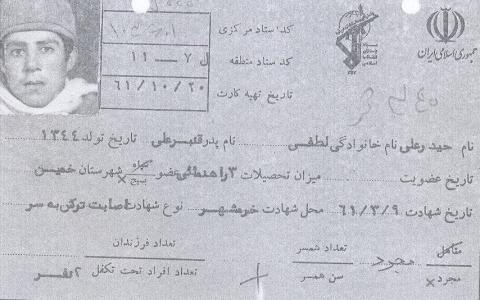 جمهوری اسلامی ایران
کد ستاد مرکزی
کد ستاد منطقه ل ۷ - ۱۱
تاریخ تهیه کارت ۶۱/۱۰/۲۰
نام حیدرعلی نام خانوادگی لطفی نام پدر قنبرعلی تاریخ تولد ۱۳۴۴
تاریخ عضویت میزان تحصیلات ۳ راهنمائی عضو سپاه بسیج × شهرستان خمین
تاریخ شهادت ۶۱/۳/۹ محل شهادت خرمشهر نوع شهادت اصابت ترکش به سر
متأهل مجرد × مجرد تعداد همسر سن همسر تعداد فرزندان تعداد افراد تحت تکفل ۲ نفر